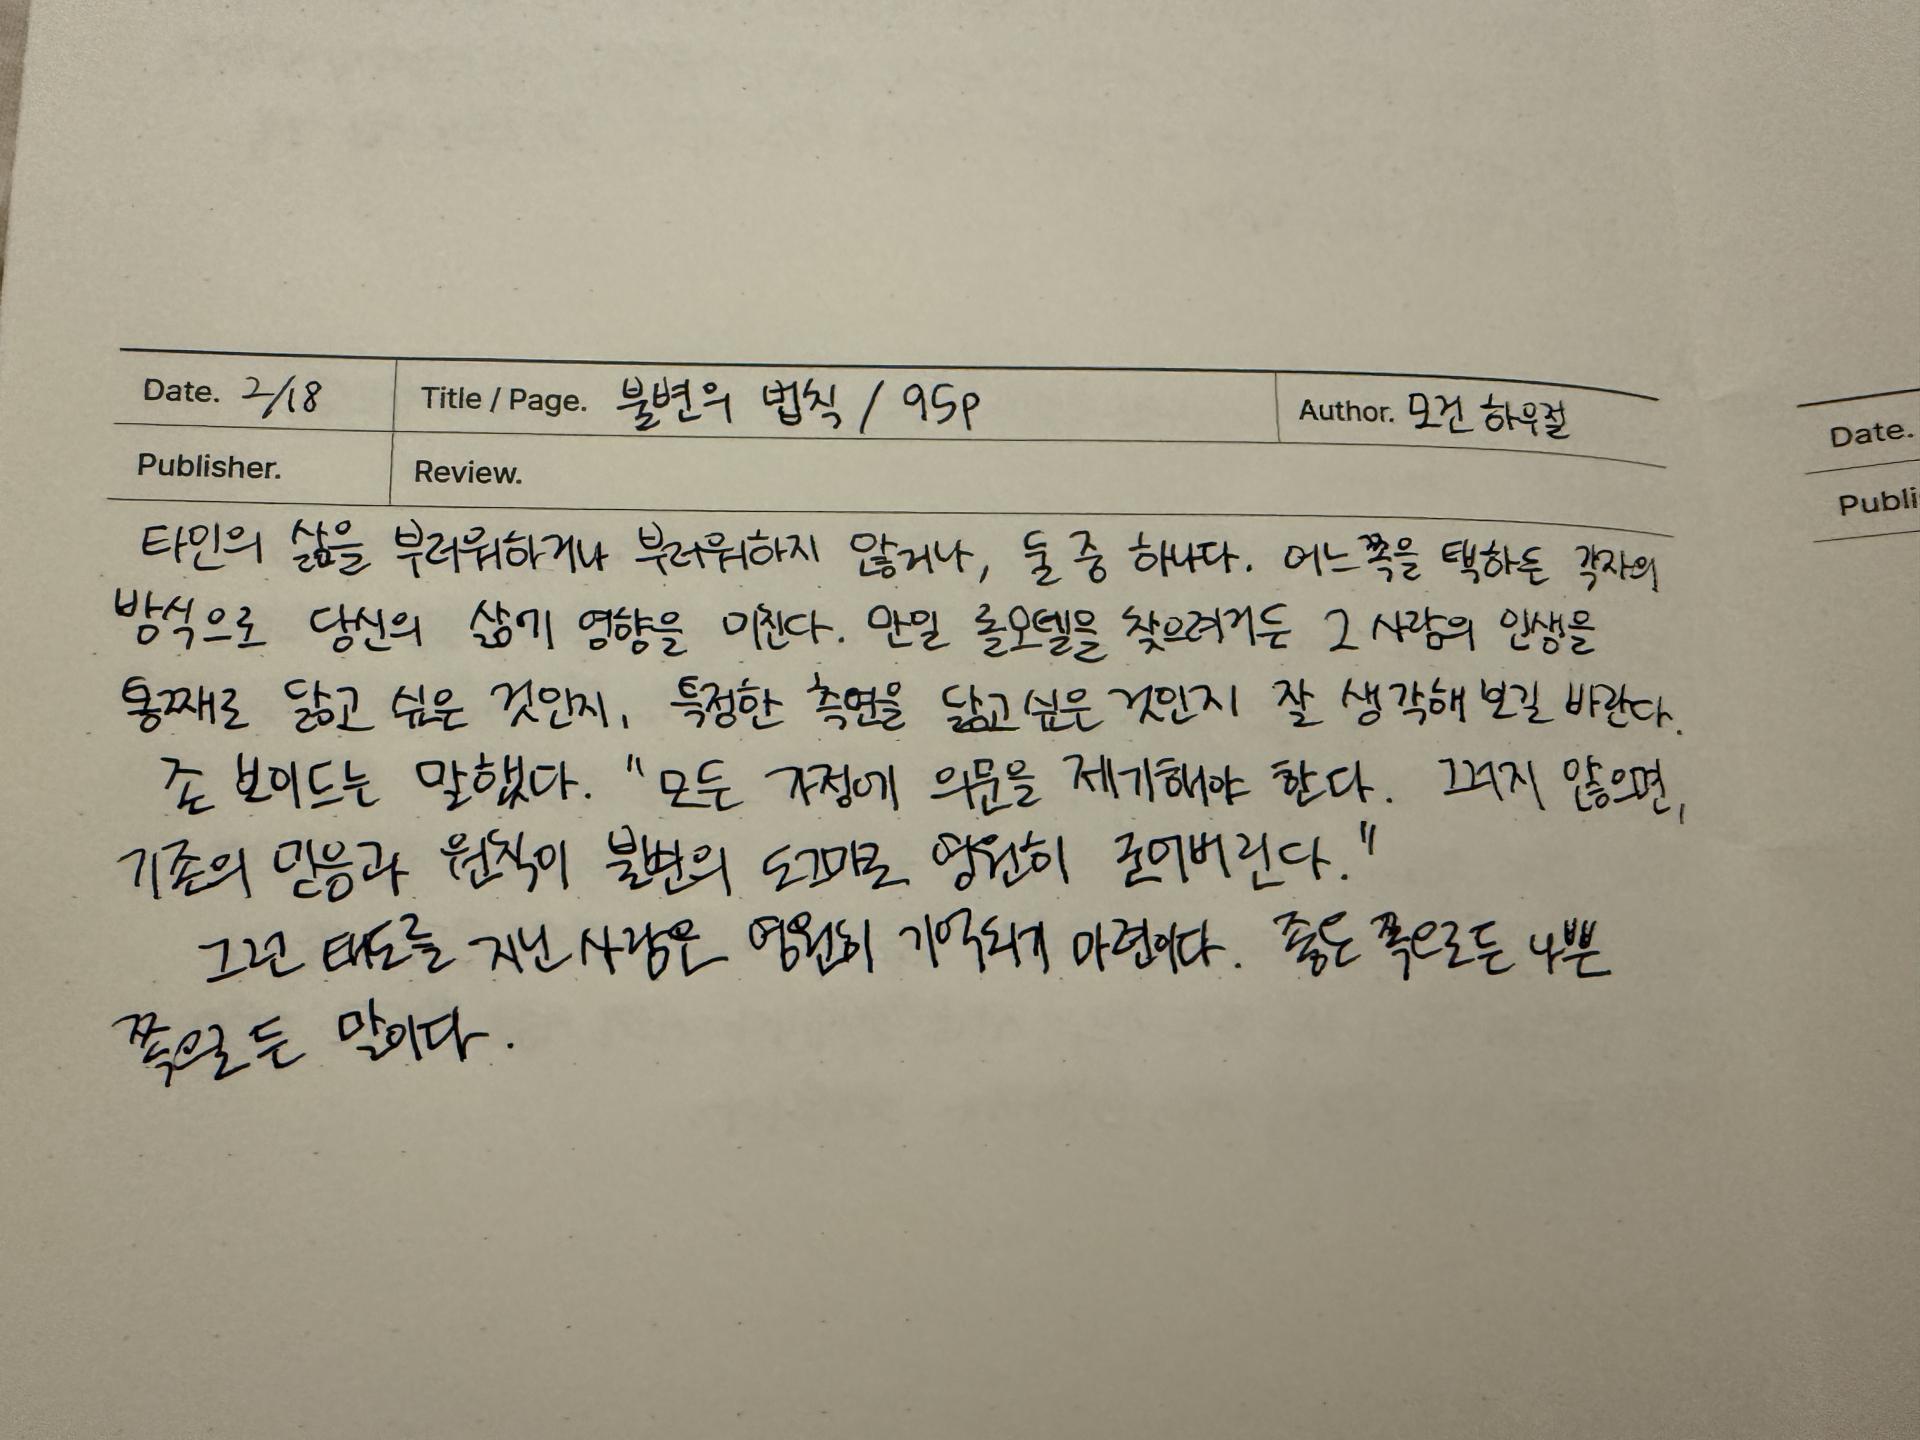 Date. 2/18 Title / Page. 불변의 법칙 / 95p Author. 모건 하우절
Publisher. Review.
타인의 삶을 부러워하거나 부러워하지 않거나, 둘 중 하나다. 어느쪽을 택하든 각자의
방식으로 당신의 삶에 영향을 미친다. 만일 롤모델을 찾으려거든 그 사람의 인생을
통째로 닮고 싶은 것인지, 특정한 측면을 닮고 싶은 것인지 잘 생각해 보길 바란다.
존 보이드는 말했다. "모든 가정에 의문을 제기해야 한다. 그러지 않으면,
기존의 믿음과 원칙이 불변의 도그마로 영원히 굳어버린다."
그런 태도를 지닌 사람은 영원히 기억되기 마련이다. 좋은 쪽으로든 나쁜
쪽으로든 말이다.
Date.
Publi